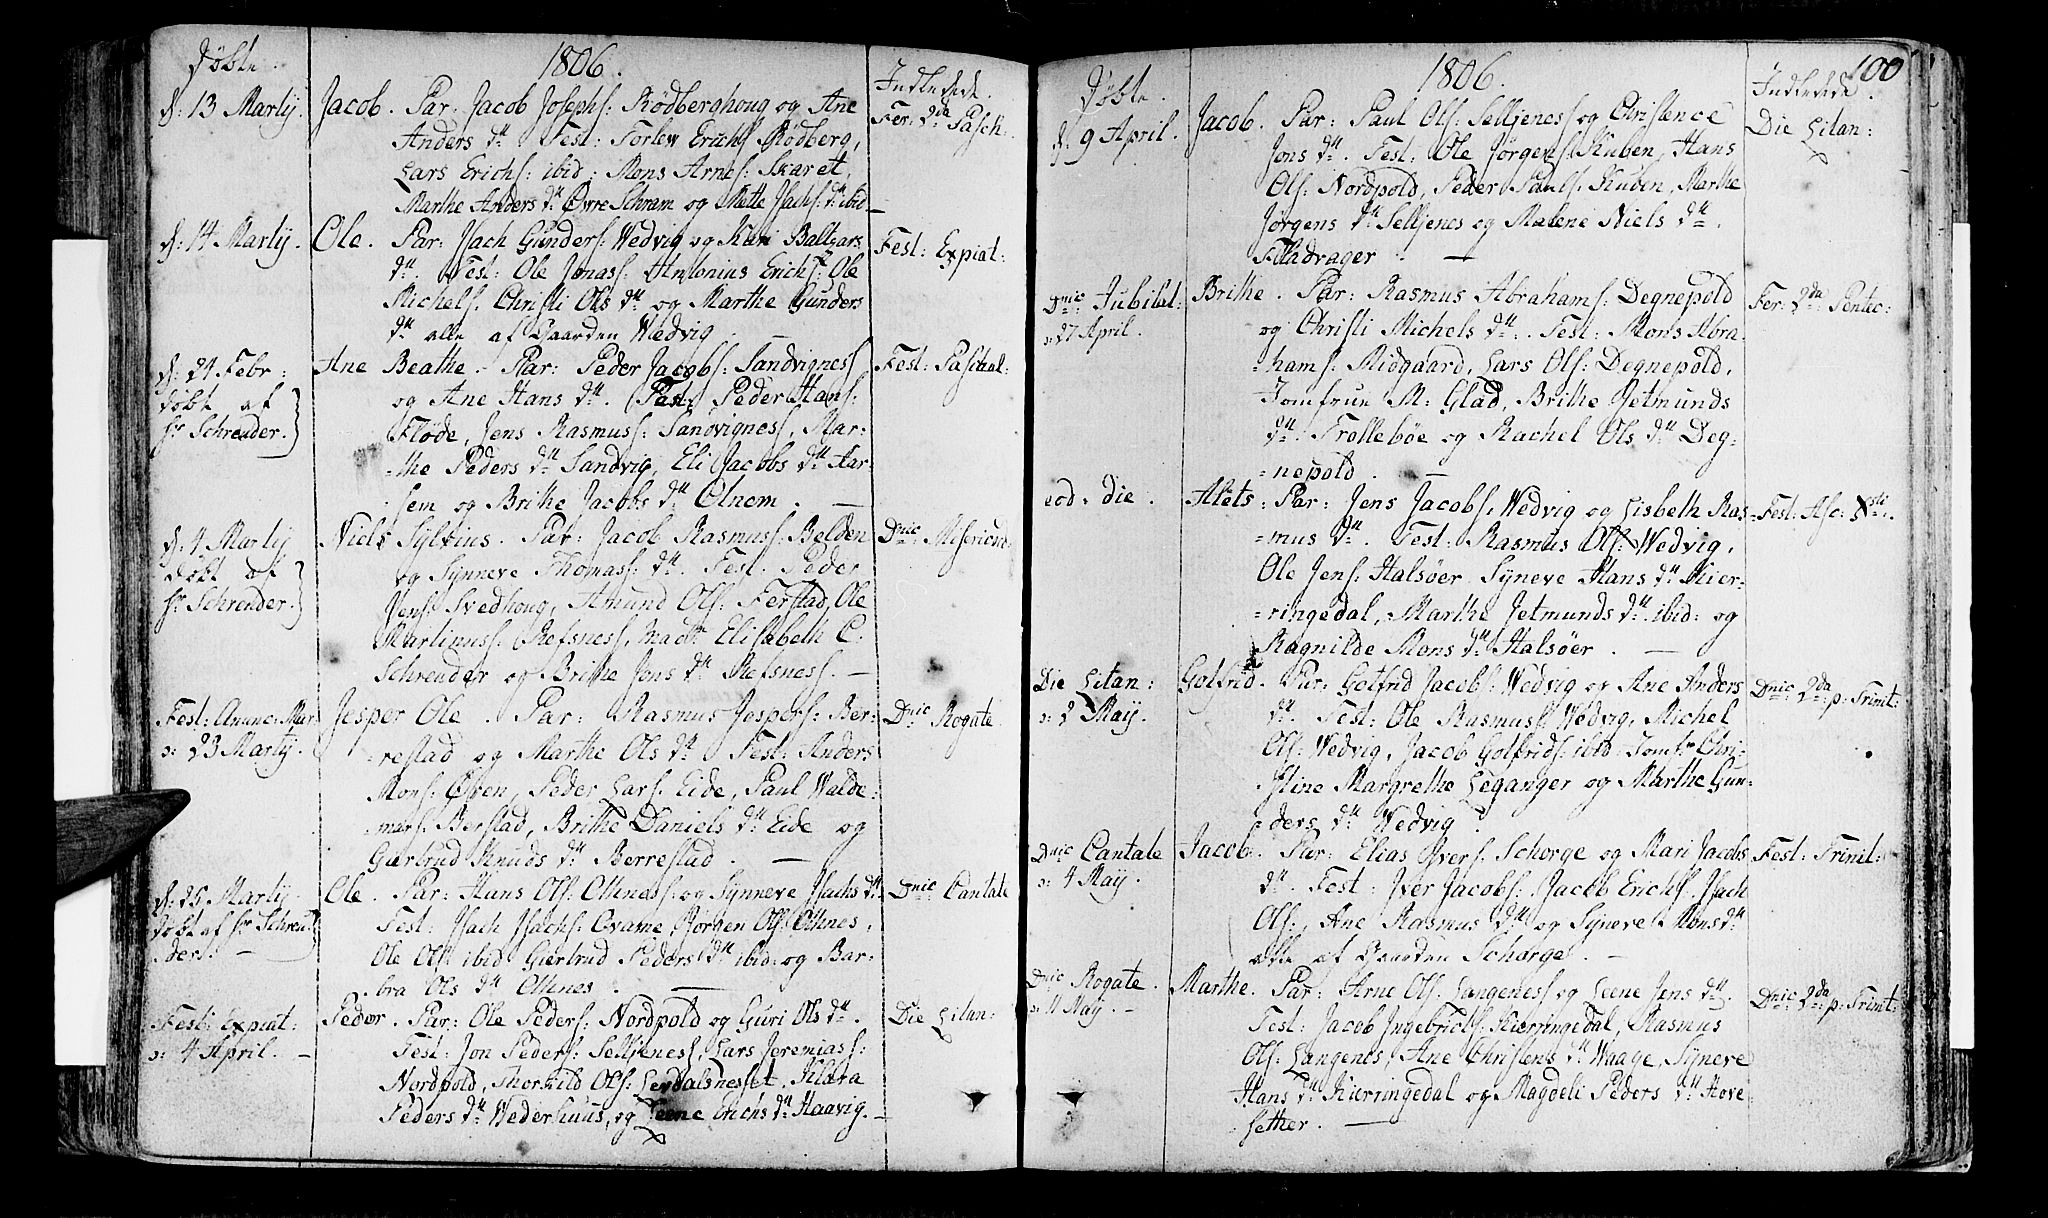 Døbte.
1806.
Indledede.
d: 13 Martij.
Jacob. Par: Jacob Josephs: Rödberghoug og Ane
Anders dtr Test: Torlew Erichs: Rödberg,
Lars Erichs: ibid: Mons Arnes: Skaret,
Marthe Anders dtr Övre Schram og Mette Isachs: dtr ibid
Fer: 2da Pasch:
d: 14 Martij.
Ole. Par: Isach Gunders: Wedvig og Kari Baltzars
dtr. Test: Ole Jonas: Antonius Erichs: Ole
Michels: Christi Ols dtr og Marthe Gunders
dtr alle af Gaarden Wedvig.
Fest: Expiat:
d: 24 Febr:
døbt af
Hr Schreuder.
Ane Beathe. Par: Peder Jacobs: Sandvigness
og Ane Hans dtr. Test: Peder Hans:
Flöde, Jens Rasmuss: Sandvigness, Mar=
=the Peders dtr Sandvig, Eli Jacobs dtr Aar=
sem og Brithe Jacobs dtr Olnem. —
Fest: Paschal:
d: 4 Martij
døbt af
Hr Schreuder.
Niels Sylvius. Par: Jacob Rasmuss: Belden
og Synneve Thomass: dtr. Test. Peder
Jens: Svedhoug, Amund Ols: Ferstad, Ole
Martinuss: Refsness, Madm Elisabeth C.
Schreuder og Brithe Jens dtr Refsness. —
Dnic Misericord:
Fest: Anunc: Mar:
ɔ: 23 Martij.
Jesper Ole. Par: Rasmus Jespers: Ber=
=restad og Marthe Ols dtr. Test: Anders
Mons: Öven, Peder Lars: Eide, Paul Walde=
=mars: Berstad, Brithe Daniels dtr Eide og
Giertrud Knuds dtr Berrestad. —
Dnic Rogate.
d: 25 Martij
døbt af Hr Schreu
der. —
Ole. Par: Hans Ols: Othness: og Synneve Isachs dtr
Test: Isach Isachs: Qvame Jörgen Ols: Othnes,
Ole Ols: ibid Giertrud Peders dtr ibid: og Bar=
bra Ols dtr Othnes. —
Dnic: Cantate
Fest: Expiat:
ɔ: 4 April. —
Peder. Par: Ole Peders: Nordpold og Guri Ols dtr.
Test: Jon Peders: Selljenes, Lars Jeremias:
Nordpold, Thorkild Ols: Lerdalsnesset, Klara
Peders dtr Wederhuus, og Leene Erichs dtr Haavig. —
Die Litan:
100
Døbte.
1806.
Indledede.
d: 9 April.
Jacob. Par: Paul Ols: Selljenes og Christence
Jons dtr. Test: Ole Jörgens: Kuben, Hans
Ols: Nordpold, Peder Pauls: Kuben, Marthe
Jörgens dtr Selljenes og Malene Niels dtr
Fladvager. —
Die Litan:
Dnic: Jubilat:
ɔ: 27 April.
Brithe. Par: Rasmus Abrahams: Degnepold
og Christi Michels dtr. Test: Mons Abra=
=hams: Midgaard, Lars Ols: Degnepold,
Jomfrue M: Glad, Brithe Jetmunds
dtr Trollebøe og Rachel Ols dtr Deg=
=nepold. —
Fer: 2da Pentec:
eod. die.
Alets: Par: Jens Jacobs: Wedvig og Lisbeth Ras=
=mus dtr. Test: Rasmus Ols: Wedvig,
Ole Jens: Halsöer. Syneve Hans dtr Kier=
=ringedal, Marthe Jetmunds dtr ibid: og
Ragnilde Mons dtr Halsöer. —
Fest: Asc: Xsti.
Die Litan:
ɔ: 2 Maÿ.
Gotfrid. Par: Gotfrid Jacobs: Wedvig og Ane Anders
dtr. Test: Ole Rasmus: Wedvig, Michel
Ols: Wedvig, Jacob Gotfrids: ibid: Jomfr Chri=
=stine Margrethe Leganger og Marthe Gun=
=ders dtr Wedvig.
Dnic: 2da p: Trinit:
Dnic Cantate
ɔ: 4 Maÿ.
Jacob. Par: Elias Ivers: Schorge og Mari Jacobs
dtr. Test: Iver Jacobs: Jacob Erichs: Isach
Ols:, Ane Rasmus dtr og Syneve Mons dtr
alle af Gaarden Schorge. —
Fest: Trinit:
Dnic Rogate.
ɔ: 11 Maÿ. —
Marthe. Par: Arne Ols: Langeness og Leene Jens dtr
Test: Jacob Ingebricts: Kierringedal, Rasmus
Ols: Langenes, Ane Christens dtr Waage, Syneve
Hans dtr Kierringedal og Magdeli Peders dtr Hove=
=sether. —
Dnic 2da p: Trinit: